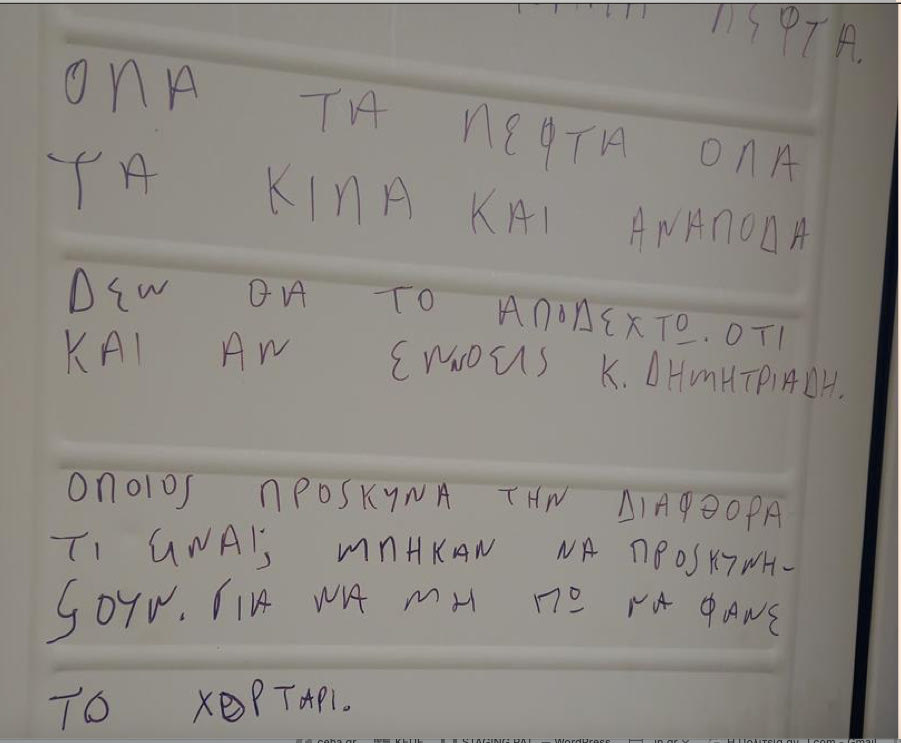 ΠΕΦΤΑ.
ΟΠΑ ΤΑ ΠΕΦΤΑ ΟΠΑ
ΤΑ ΚΙΠΑ ΚΑΙ ΑΝΑΠΟΔΑ
ΔΕΝ ΘΑ ΤΟ ΑΠΟΔΕΧΤΟ. ΟΤΙ
ΚΑΙ ΑΝ ΕΝΝΟΕΙΣ Κ. ΔΗΜΗΤΡΙΑΔΗ.
ΟΠΟΙΟΣ ΠΡΟΣΚΥΝΑ ΤΗΝ ΔΙΑΦΘΟΡΑ
ΤΙ ΕΙΝΑΙ; ΜΠΗΚΑΝ ΝΑ ΠΡΟΣΚΥΝΗ-
ΣΟΥΝ. ΓΙΑ ΝΑ ΜΗ ΠΩ ΝΑ ΦΑΝΕ
ΤΟ ΧΟΡΤΑΡΙ.